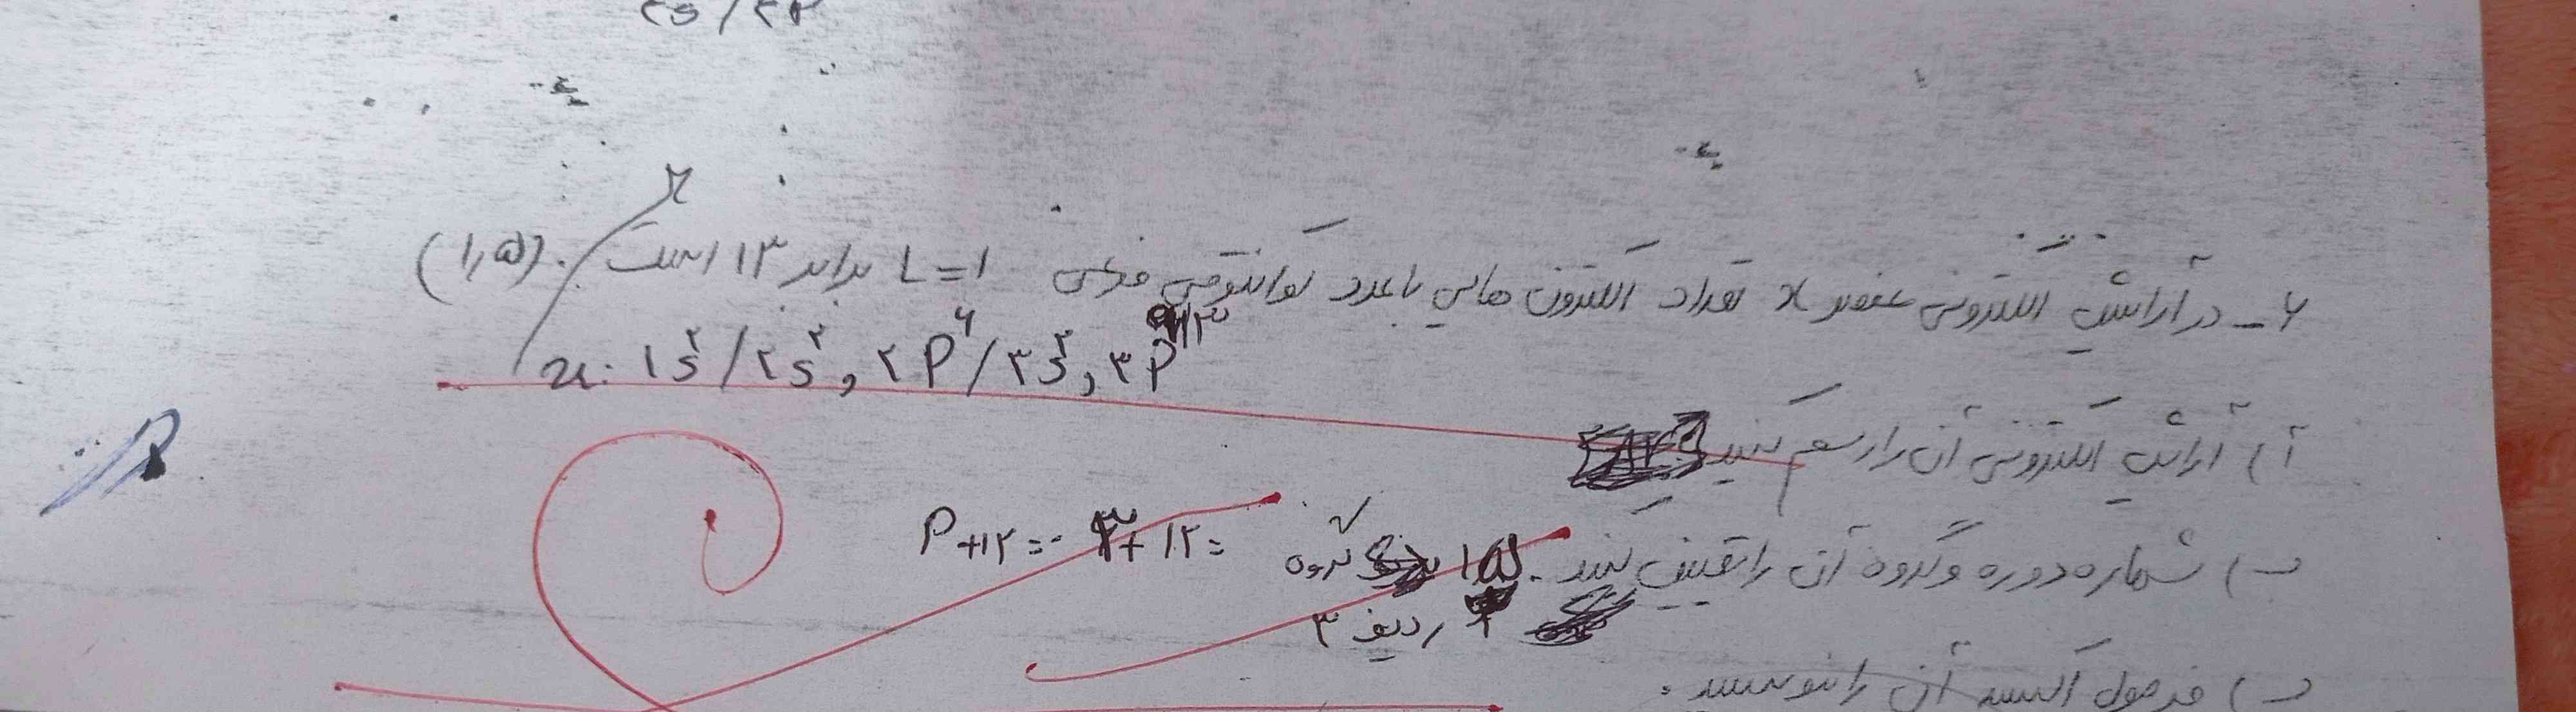 ۲s / ۲p
۲
۶ - در آرایش الکترونی عنصر x تعداد الکترون هایی با عدد کوانتومی فرعی L=۱ برابر ۱۳ است. (۱٫۵)
x: ۱s۲ / ۲s۲, ۲P۶ / ۳s۲, ۳P۳
آ) آرایش الکترونی آن را رسم کنید
ب) شماره دوره و گروه آن را تعیین کنید. ۱۵ گروه P+۱۲ = ۳+۱۲ =
ردیف ۳
پ) فرمول اکسید آن را بنویسید.